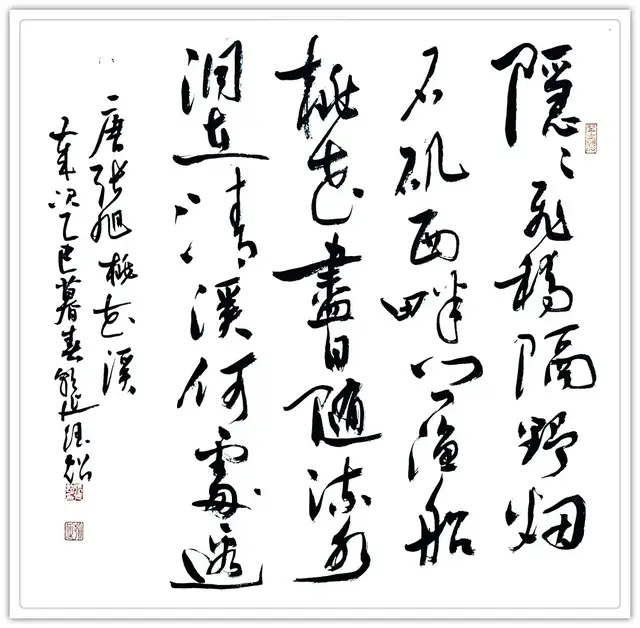 隱〻飛橋隔野烟
石磯西畔问漁船
桃花盡日随流水
洞在清溪何處邊
唐張旭桃花溪
歲次乙巳暮春